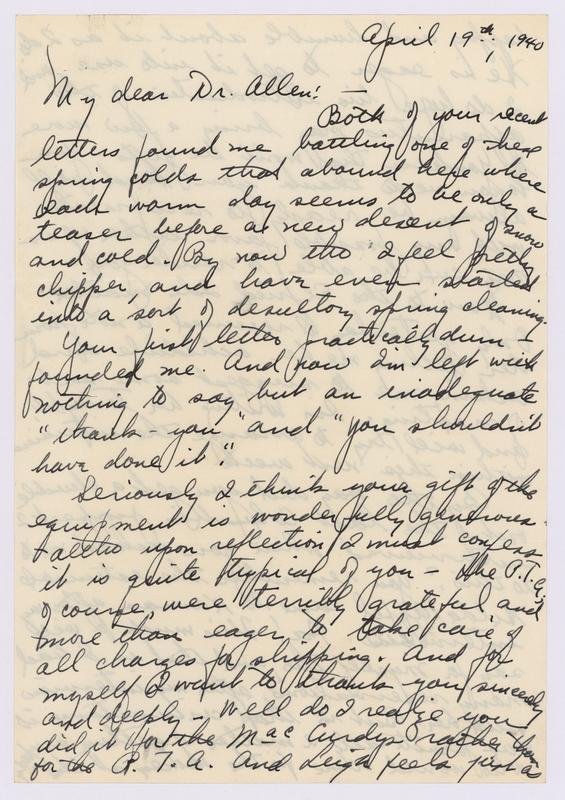 April 19th, 1940
My dear Dr. Allen: —
Both of your recent
letters found me battling one of these
spring colds that abound here where
each warm day seems to be only a
teaser before a new descent of snow
and cold. By now tho' I feel pretty
chipper, and have even started
into a sort of desultory spring cleaning.
Your first letter practically dum-
founded me. And now I'm left with
nothing to say but an inadequate
"thank-you" and "you shouldn't
have done it".
Seriously I think your gift of the
equipment is wonderfully generous -
+ altho upon reflection I must confess
it is quite typical of you — The P.T.A.,
of course, were terribly grateful and
more than eager to take care of
all charges for shipping. And for
myself I want to thank you sincerely
and deeply - Well do I realize you
did it for the MacCurdys rather than
for the P.T.A. And Leigh feels just as